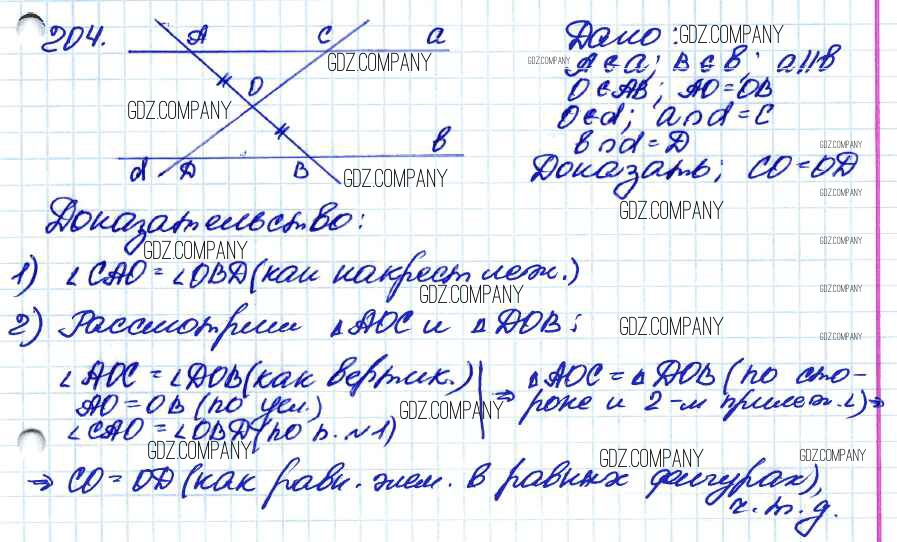 204.
A C a
O
d D B b
Дано:
A ∈ a; B ∈ b; a || b
O ∈ AB; AO = OB
O ∈ d; a ∩ d = C
b ∩ d = D
Доказать; CO = OD
Доказательство:
1) ∠CAO = ∠OBD (как накрест леж.)
2) Рассмотрим △AOC и △DOB:
∠AOC = ∠DOB (как вертик.)
AO = OB (по усл.)
∠CAO = ∠OBD (по п. №1)
⇒ △AOC = △DOB (по сто-
роне и 2-м прилеж. ∠) ⇒
⇒ CO = OD (как равн. элем. в равных фигурах),
ч.т.д.
GDZ.COMPANY
GDZ.COMPANY
GDZ.COMPANY
GDZ.COMPANY
GDZ.COMPANY
GDZ.COMPANY
GDZ.COMPANY
GDZ.COMPANY
GDZ.COMPANY
GDZ.COMPANY
GDZ.COMPANY
GDZ.COMPANY
GDZ.COMPANY
GDZ.COMPANY
GDZ.COMPANY
GDZ.COMPANY
GDZ.COMPANY
GDZ.COMPANY